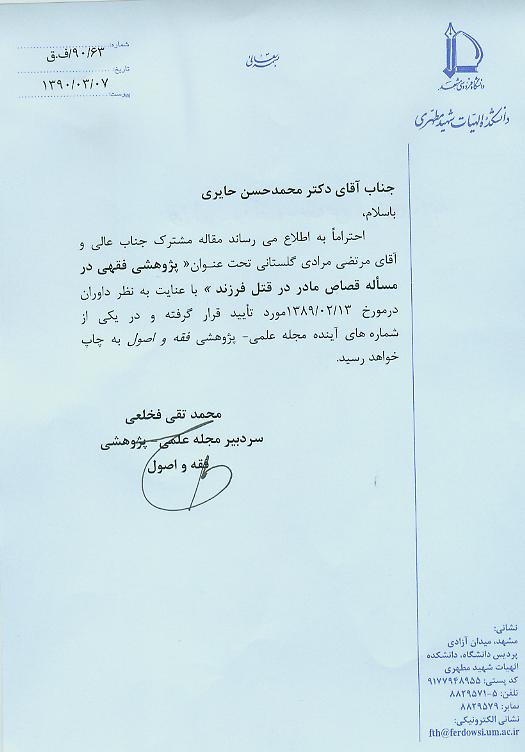 شماره: ۹۰/۶۳/ف.ق
تاریخ: ۱۳۹۰/۰۳/۰۷
پیوست:
بسمه تعالی
دانشگاه فردوسی مشهد
دانشکده الهیات شهید مطهری
جناب آقای دکتر محمدحسن حایری
باسلام،
احتراماً به اطلاع می رساند مقاله مشترک جناب عالی و
آقای مرتضی مرادی گلستانی تحت عنوان« پژوهشی فقهی در
مسأله قصاص مادر در قتل فرزند » با عنایت به نظر داوران
درمورخ ۱۳۸۹/۰۲/۱۳مورد تأیید قرار گرفته و در یکی از
شماره های آینده مجله علمی- پژوهشی فقه و اصول به چاپ
خواهد رسید.
محمد تقی فخلعی
سردبیر مجله علمی- پژوهشی
فقه و اصول
نشانی:
مشهد، میدان آزادی
پردیس دانشگاه، دانشکده
الهیات شهید مطهری
کد پستی: ۹۱۷۷۹۴۸۹۵۵
تلفن: ۵-۸۸۲۹۵۷۱
نمابر: ۸۸۲۹۵۷۹
نشانی الکترونیکی:
fth@ferdowsi.um.ac.ir